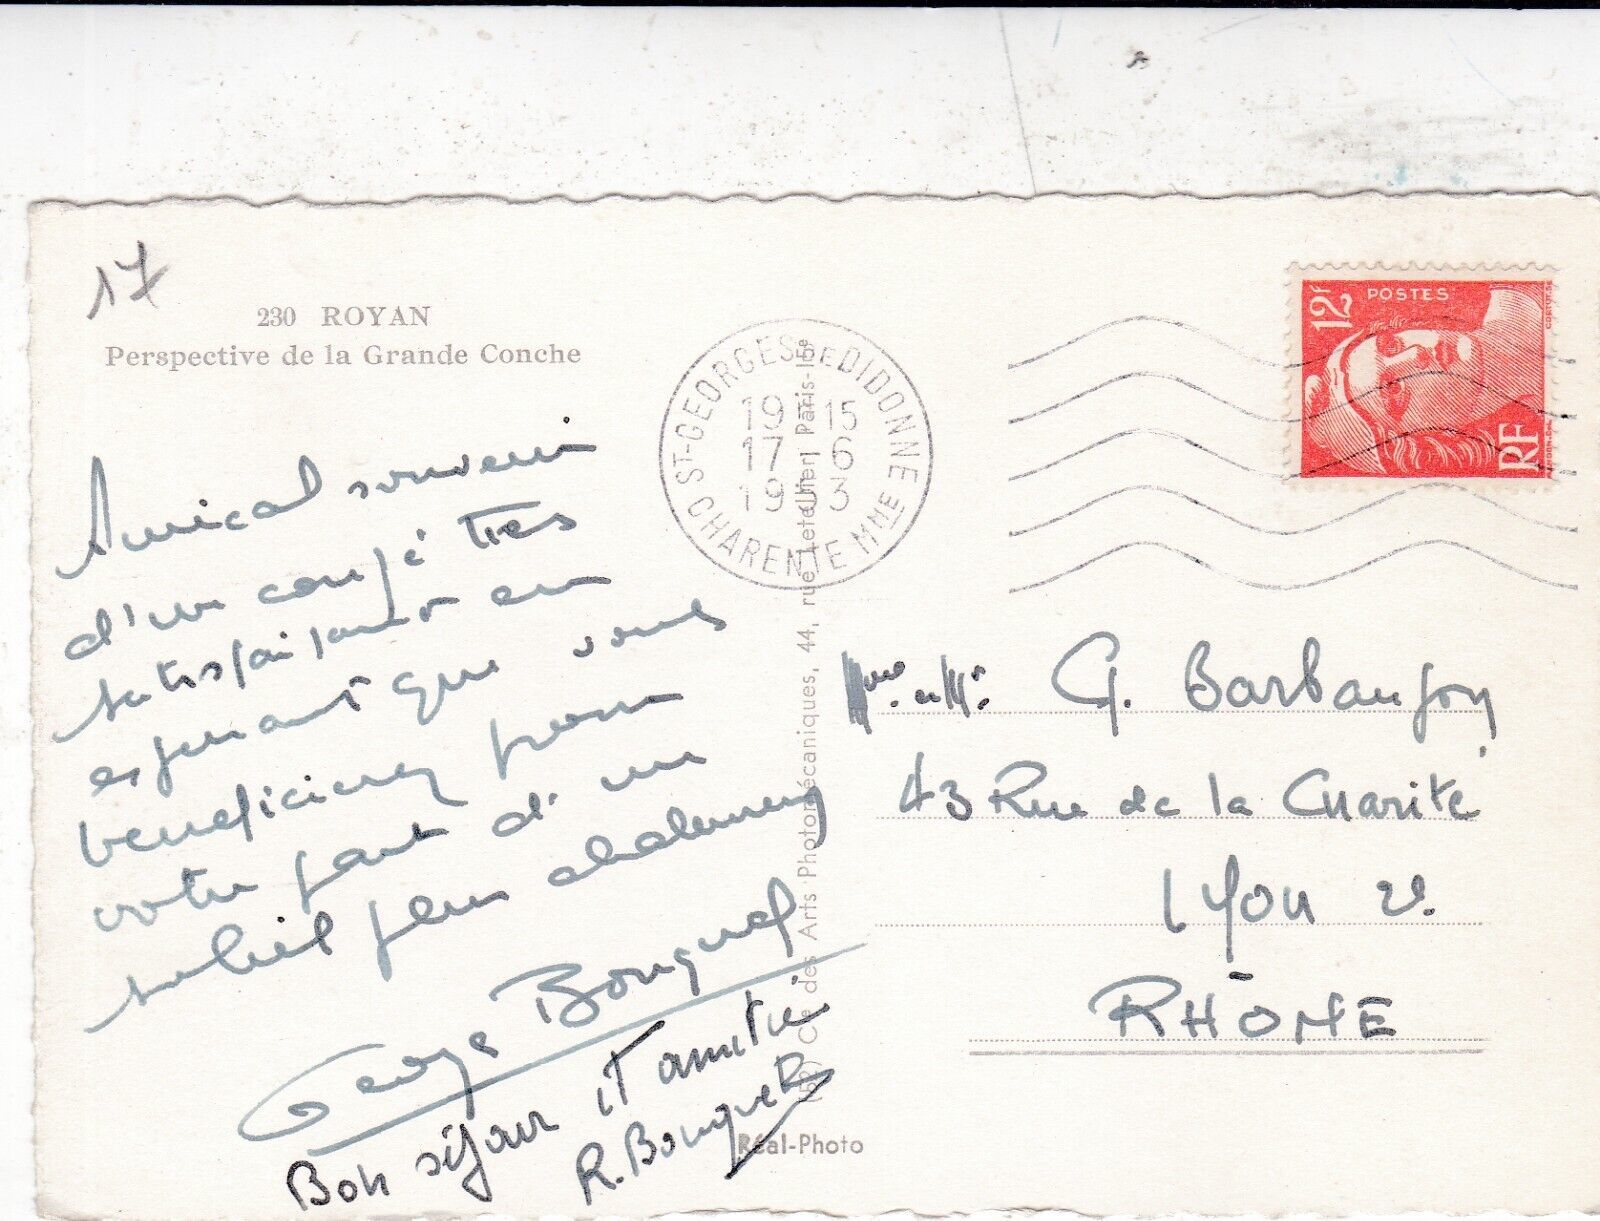 17
230 ROYAN
Perspective de la Grande Conche
Amical souvenir
d'un congé très
satisfaisant en
espérant que vous
bénéficierez pour
votre part d'un
soleil plus chaleureux
George Bouquet
Bon séjour et amitié
R. Bouquet
Réal-Photo
Cie des Arts Photomécaniques, 44, rue Letellier, Paris-15e
ST-GEORGES DE DIDONNE
19 H 15
17 6
1953
CHARENTE MME
12F
POSTES
RF
Mme et Mr. G. Barbaujon
43 Rue de la Charité
Lyon 2e.
RHÔNE